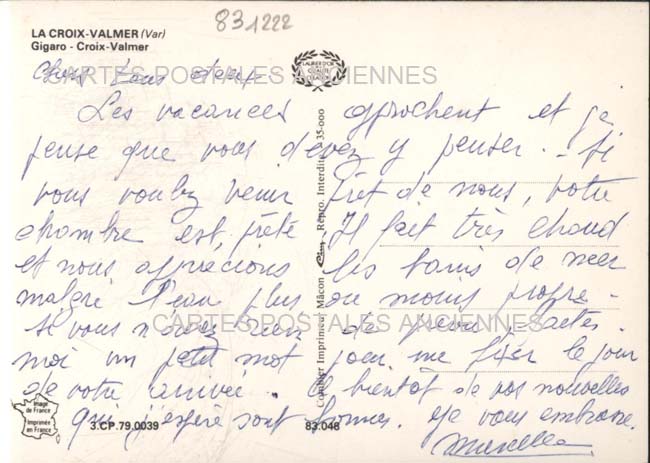 831222
LA CROIX-VALMER (Var)
Gigaro - Croix-Valmer
LAURIER D'OR
QUALITE
CREATION
CARTES POSTALES ANCIENNES
Chers Vous deux
Les vacances approchent et je
pense que vous devez y penser. - Si
vous voulez venir près de nous, votre
chambre est prête. Il fait très chaud
et nous apprécions les bains de mer
malgré l'eau plus ou moins propre.
Si vous n'avez rien de prévu, faites
moi un petit mot pour me fixer le jour
de votre arrivée. A bientôt de vos nouvelles
qui j'espère sont bonnes. Je vous embrasse.
CARTES POSTALES ANCIENNES
Combier Imprimeur Mâcon Cim Repro. Interdite 35-000
Image
de France
Imprimée
en France
3.CP.79.0039
83.048